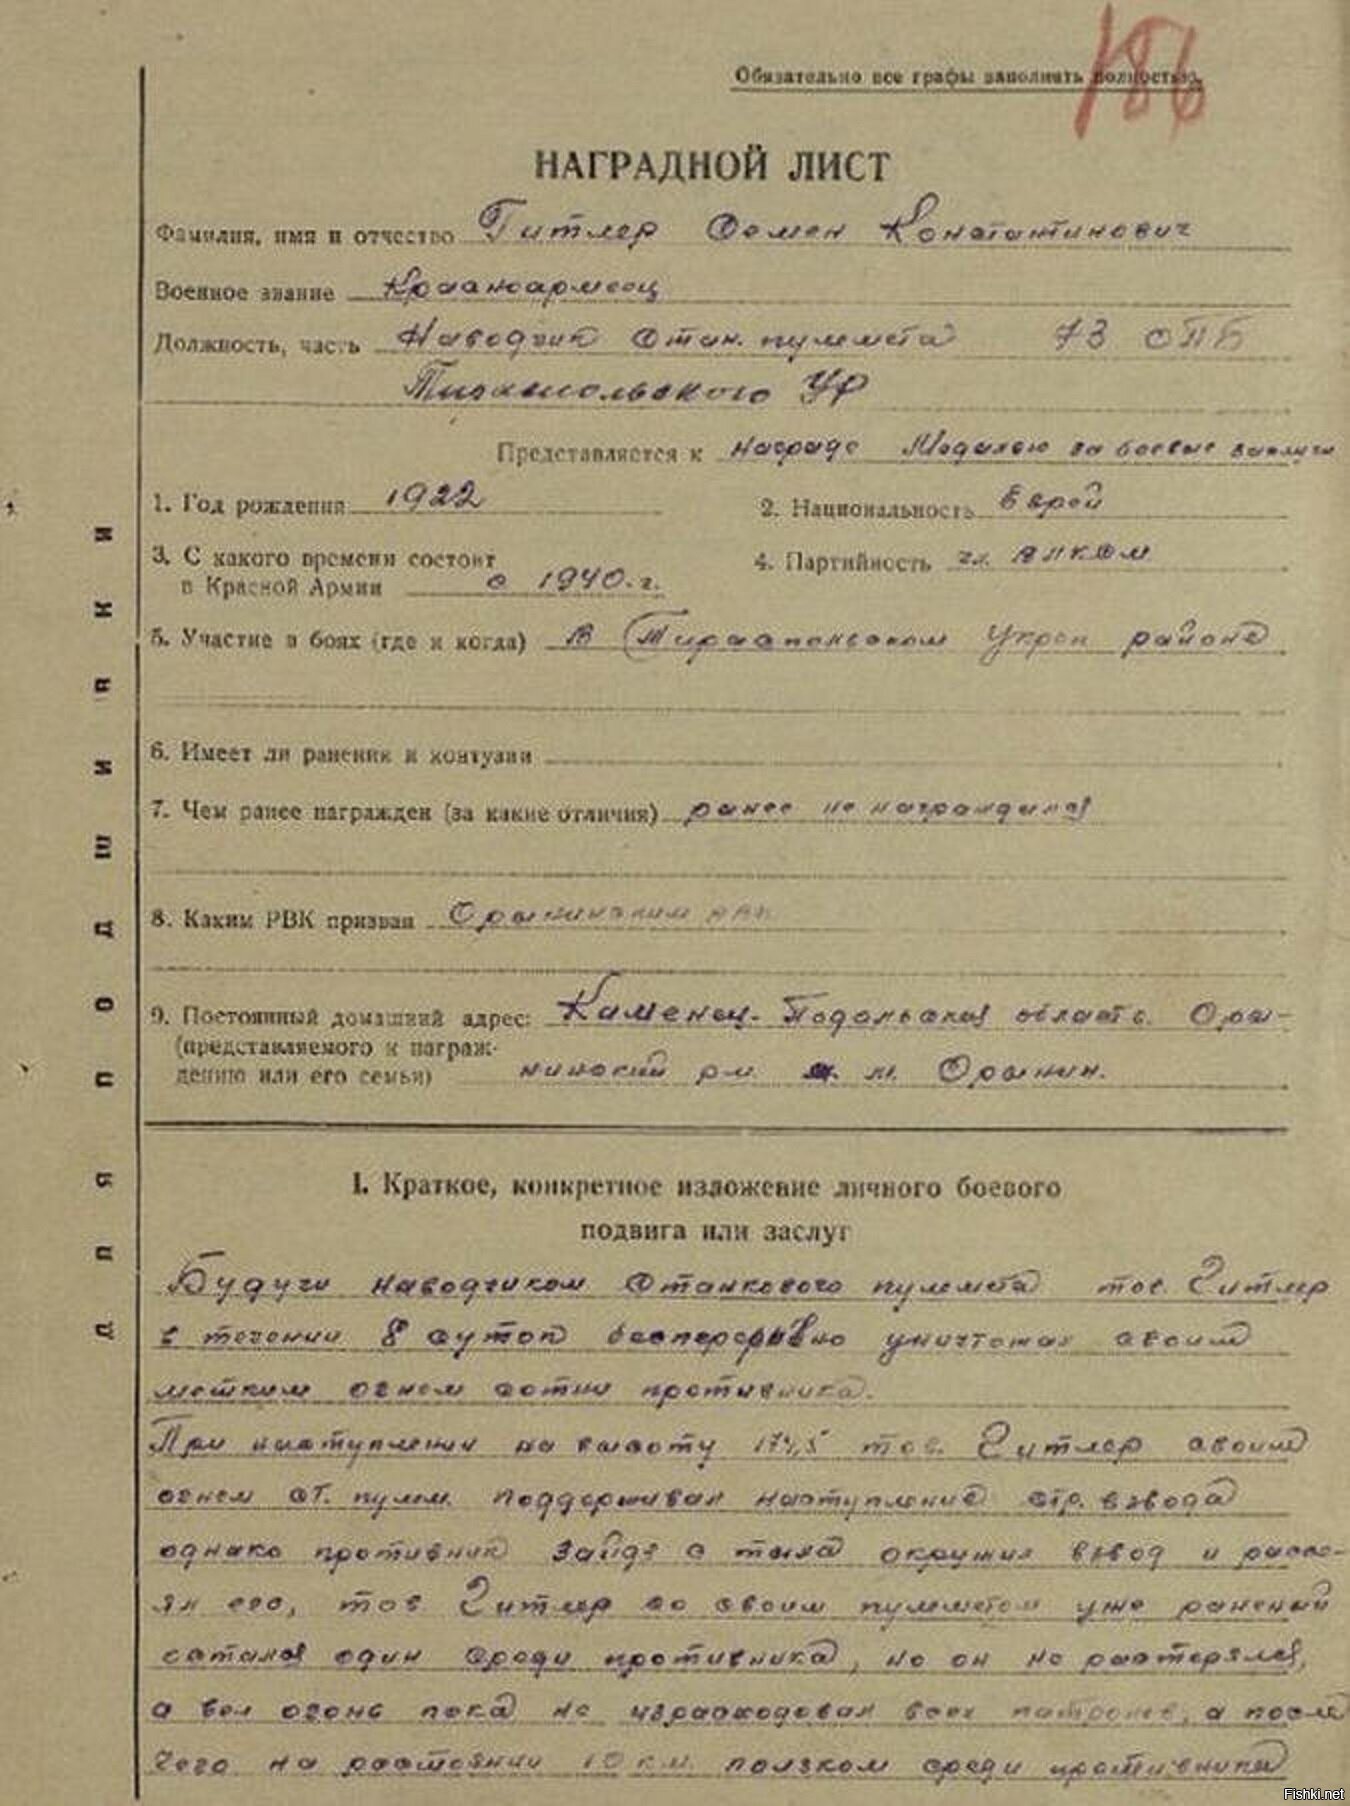 186
Обязательно все графы заполнять полностью.
НАГРАДНОЙ ЛИСТ
Фамилия, имя и отчество Гитлер Семен Константинович
Военное звание Красноармеец
Должность, часть Наводчик Стан. пулемета 73 ОПБ
Тираспольского УР
Представляется к награде Медалью за боевые заслуги
1. Год рождения 1922
2. Национальность Еврей
3. С какого времени состоит
в Красной Армии с 1940. г.
4. Партийность чл. ВЛКСМ
5. Участие в боях (где и когда) В Тираспольском Укреп районе
6. Имеет ли ранения и контузии
7. Чем ранее награжден (за какие отличия) ранее не награждался
8. Каким РВК призван Орынинским РВК
9. Постоянный домашний адрес: Каменец-Подольская область. Оры-
(представляемого к награж-
дению или его семьи) нинский р-н м. Орынин.
ДЛЯ ПОДШИВКИ
I. Краткое, конкретное изложение личного боевого
подвига или заслуг
Будучи наводчиком Станкового пулемета тов. Гитлер
в течении 8 суток беспрерывно уничтожал своим
метким огнем сотни противника.
При наступлении на высоту 174,5 тов. Гитлер своим
огнем ст. пулем. поддерживал наступление стр. взвода
однако противник зайдя с тыла окружил взвод и рассе-
ял его, тов Гитлер со своим пулеметом уже раненый
остался один среди противника, но он не растерялся,
а вел огонь пока не израсходовал всех патронов, а после
чего на расстоянии 10 км. ползком среди противника
Fishki.net